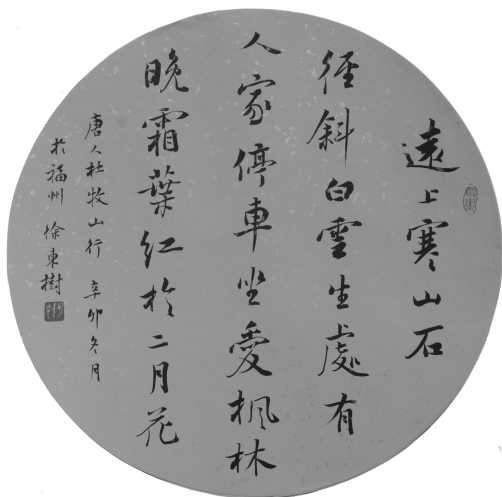 遠上寒山石
徑斜白雲生處有
人家停車坐愛楓林
晚霜葉紅於二月花
唐人杜牧山行 辛卯冬月
於福州 徐東樹